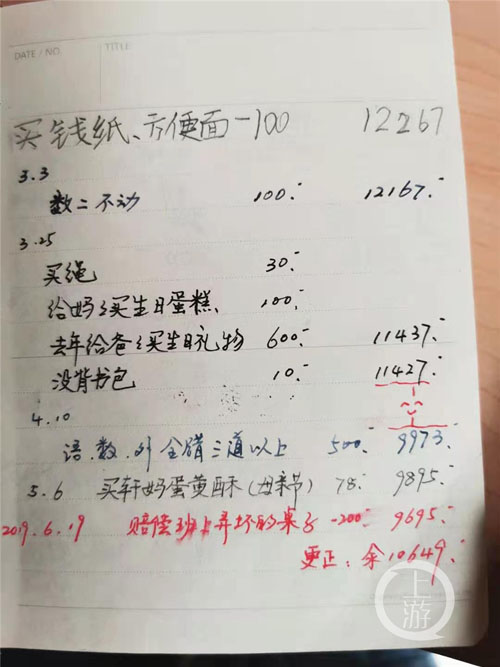 DATE / NO. TITLE
买钱纸、方便面-100 12267
3.3
数二不动 100.- 12167.-
3.25
买绳 30.-
给妈妈买生日蛋糕. 100.-
去年给爸爸买生日礼物 600.- 11437.-
没背书包 10.- 11427.-
4.10
语.数.外全错三道以上 500.- 9973.-
5.6 买轩妈蛋黄酥(母亲节) 78.- 9895.-
2019.6.19 赔偿班上弄坏的桌子 -200.- 9695.-
更正: 余10649.-
上游